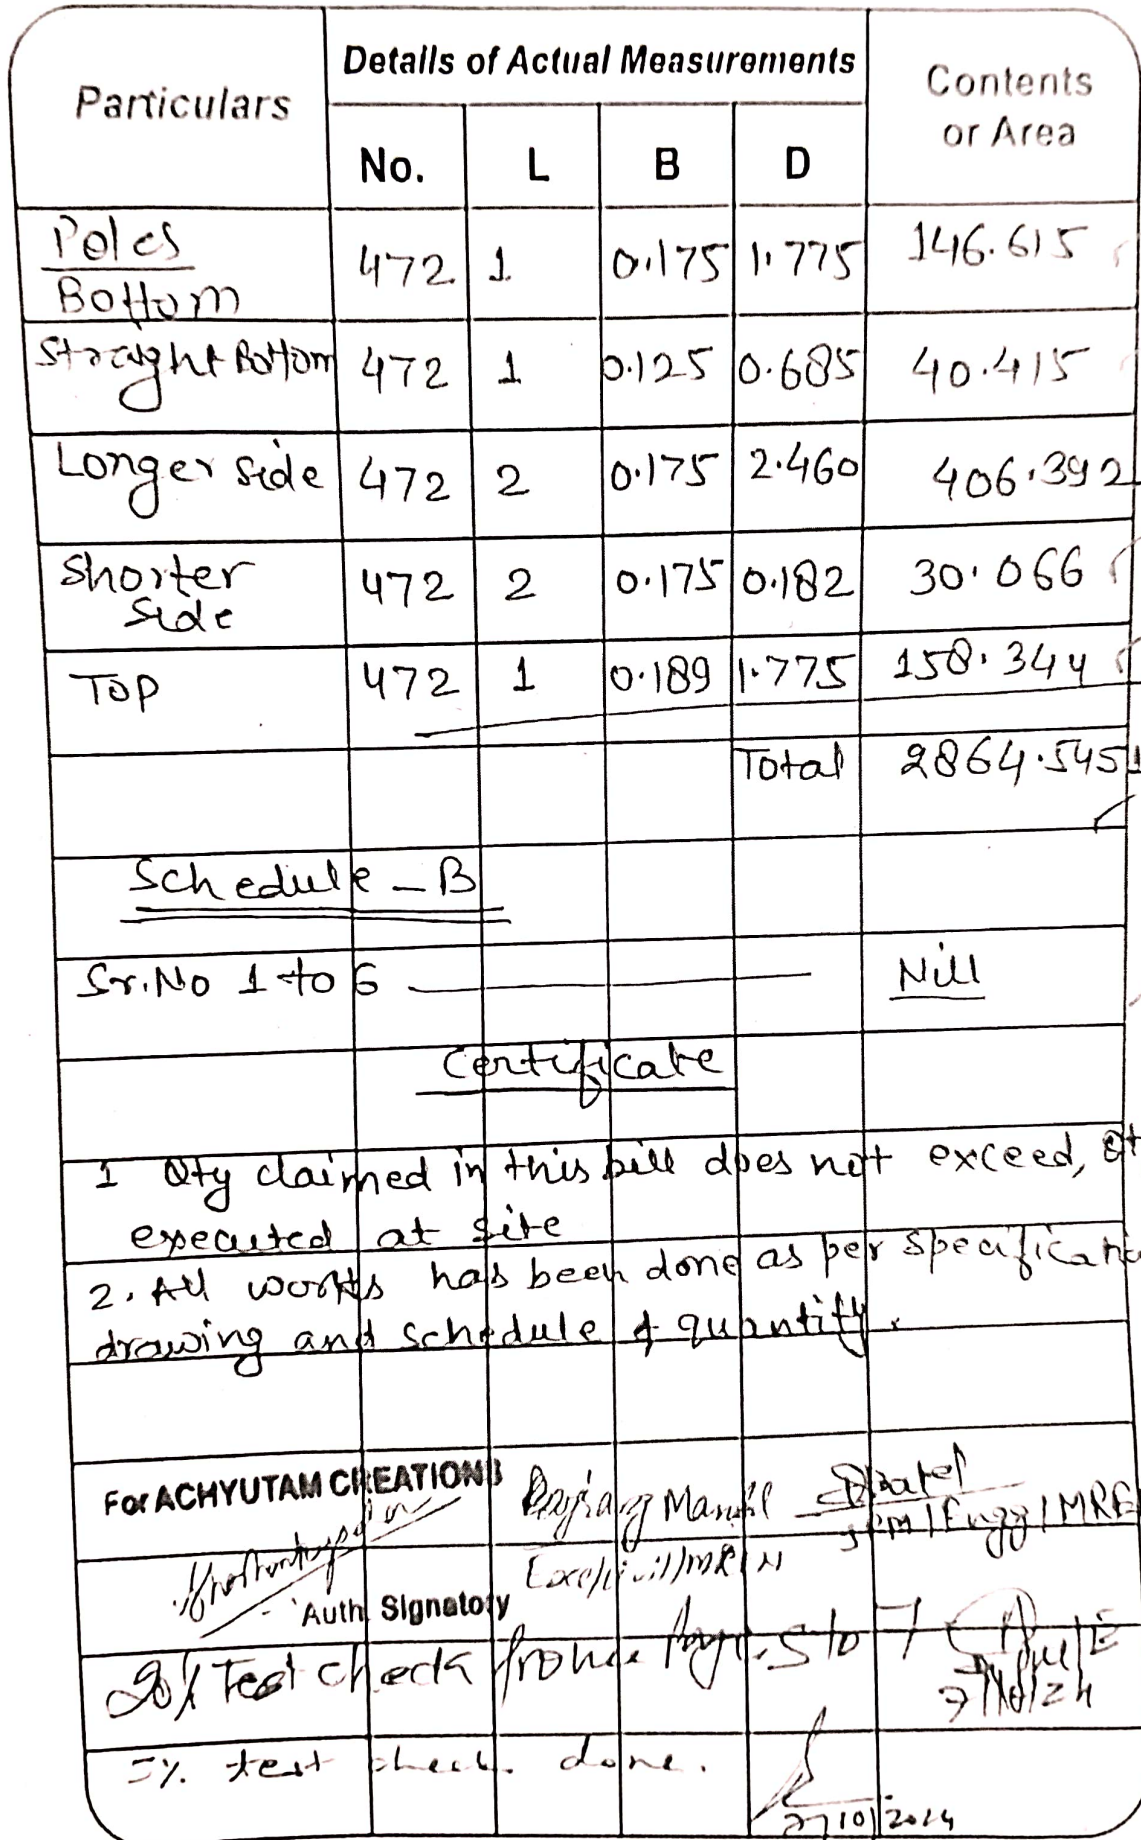 Particulars
Details of Actual Measurements
Contents
or Area
No. L B D
Poles
Bottom 472 1 0.175 1.775 146.615
Straight Bottom 472 1 0.125 0.685 40.415
Longer side 472 2 0.175 2.460 406.392
Shorter
side 472 2 0.175 0.182 30.066
Top 472 1 0.189 1.775 158.344
Total 2864.545
Schedule - B
Sr.No 1 to 6 Nill
Certificate
1 Qty claimed in this bill does not exceed,
executed at site
2. All works has been done as per
drawing and schedule & quantity.
For ACHYUTAM CREATIONS
Auth. Signatory
20% Test check
5% test check done.
27/10/2024